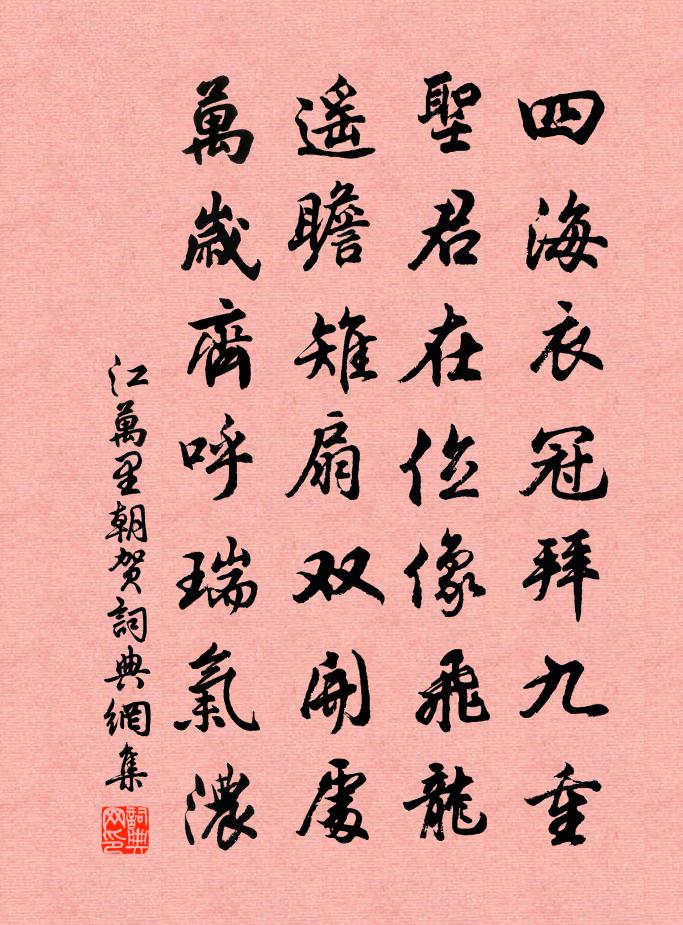 四海衣冠拜九重
聖君在位像飛龍
遙瞻雉扇双開處
萬歲齊呼瑞氣濃
江萬里朝贺詞典網集
詞典网印